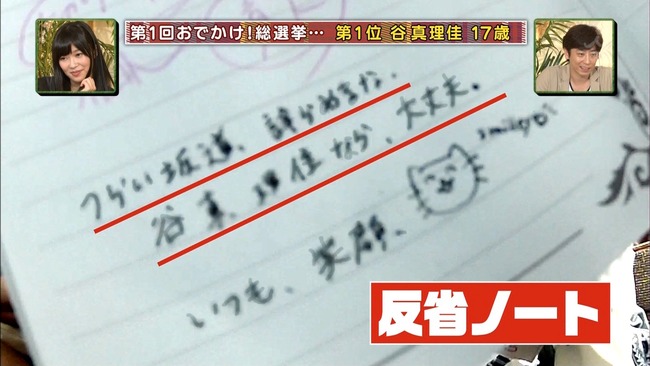 第1回おでかけ!総選挙… 第1位 谷 真理佳 17歳
つらい坂道、諦めるな。
谷真理佳なら、大丈夫。
いつも、笑顔、
反省ノート